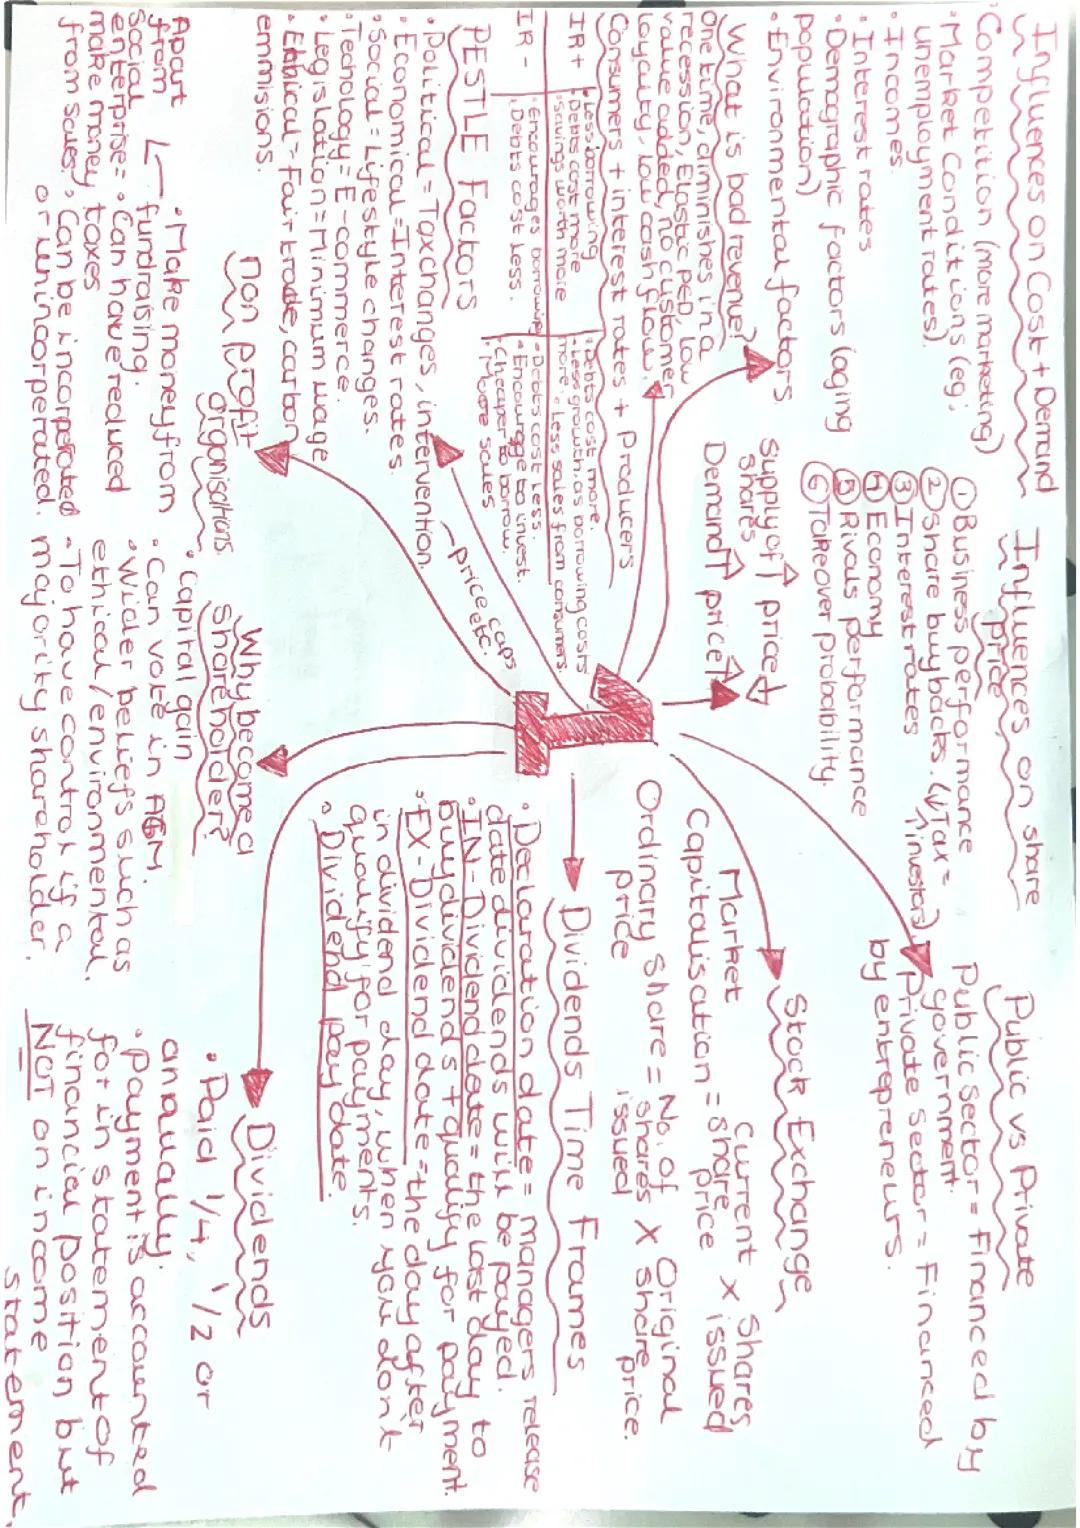 Influences on Cost + Demand
· Competition (more marketing)
· Market Conditions (eg;
unemployment rates).
· Incomes.
· Interest rates
· Demographic factors (aging
population)
· Environmental factors.
What is bad revenue?
One time, diminishes in a
recession, Elastic PED, low
value added, no customer
loyalty, low cash flow.
Consumers + interest rates + Producers
IR +
· Less borrowing
· Debts cost more
· Savings worth more
· Debts cost more.
· Less growth as borrowing costs
more. · Less sales from consumers.
IR -
· Encourages borrowing
· Debts cost less.
· Debts cost less.
· Encourage to invest.
· Cheaper to borrow.
· More sales
PESTLE Factors
· Political = Tax changes, intervention.
price caps
etc.
· Economical = Interest rates.
· Social = Lifestyle changes.
· Techology = E-commerce.
· Legislation = Minimum wage
· Ethical = Fair trade, carbon
emmisions.
Non profit
organisations.
· Make money from
fundraising.
Apart
from
social
enterprise =
make money
from sales
· Can have reduced
taxes
· Can be incorperated
or unincorperated.
Influences on share
price
① Business performance
② Share buybacks. (↓Tax =
↑investors)
③ Interest rates
④ Economy
⑤ Rivals performance
⑥ Takeover probability.
Supply of ↑ price ↓
shares
Demand ↑ price ↑
1
Why become a
shareholder?
· Capital gain
· Can vote in AGM.
· Wider beliefs such as
ethical/environmental.
· To have control if a
majority shareholder.
Public vs Private
Public Sector = Financed by
government.
Private Sector = Financed
by entrepreneurs.
Stock Exchange
Market
Capitalisation = Current share price X Shares issued
Ordinary Share = No. of shares issued X Original share price.
price
Dividends Time Frames
· Declaration date = managers release
date dividends will be payed.
· IN-Dividend date = the last day to
buy dividends + qualify for payment.
· EX-Dividend date = the day after
in dividend day, when you don't
qualify for payments.
· Dividend pay date.
Dividends
· Paid 1/4, 1/2 or
anually.
· Payment is accounted
for in statement of
financial position but
NOT on income
statement.